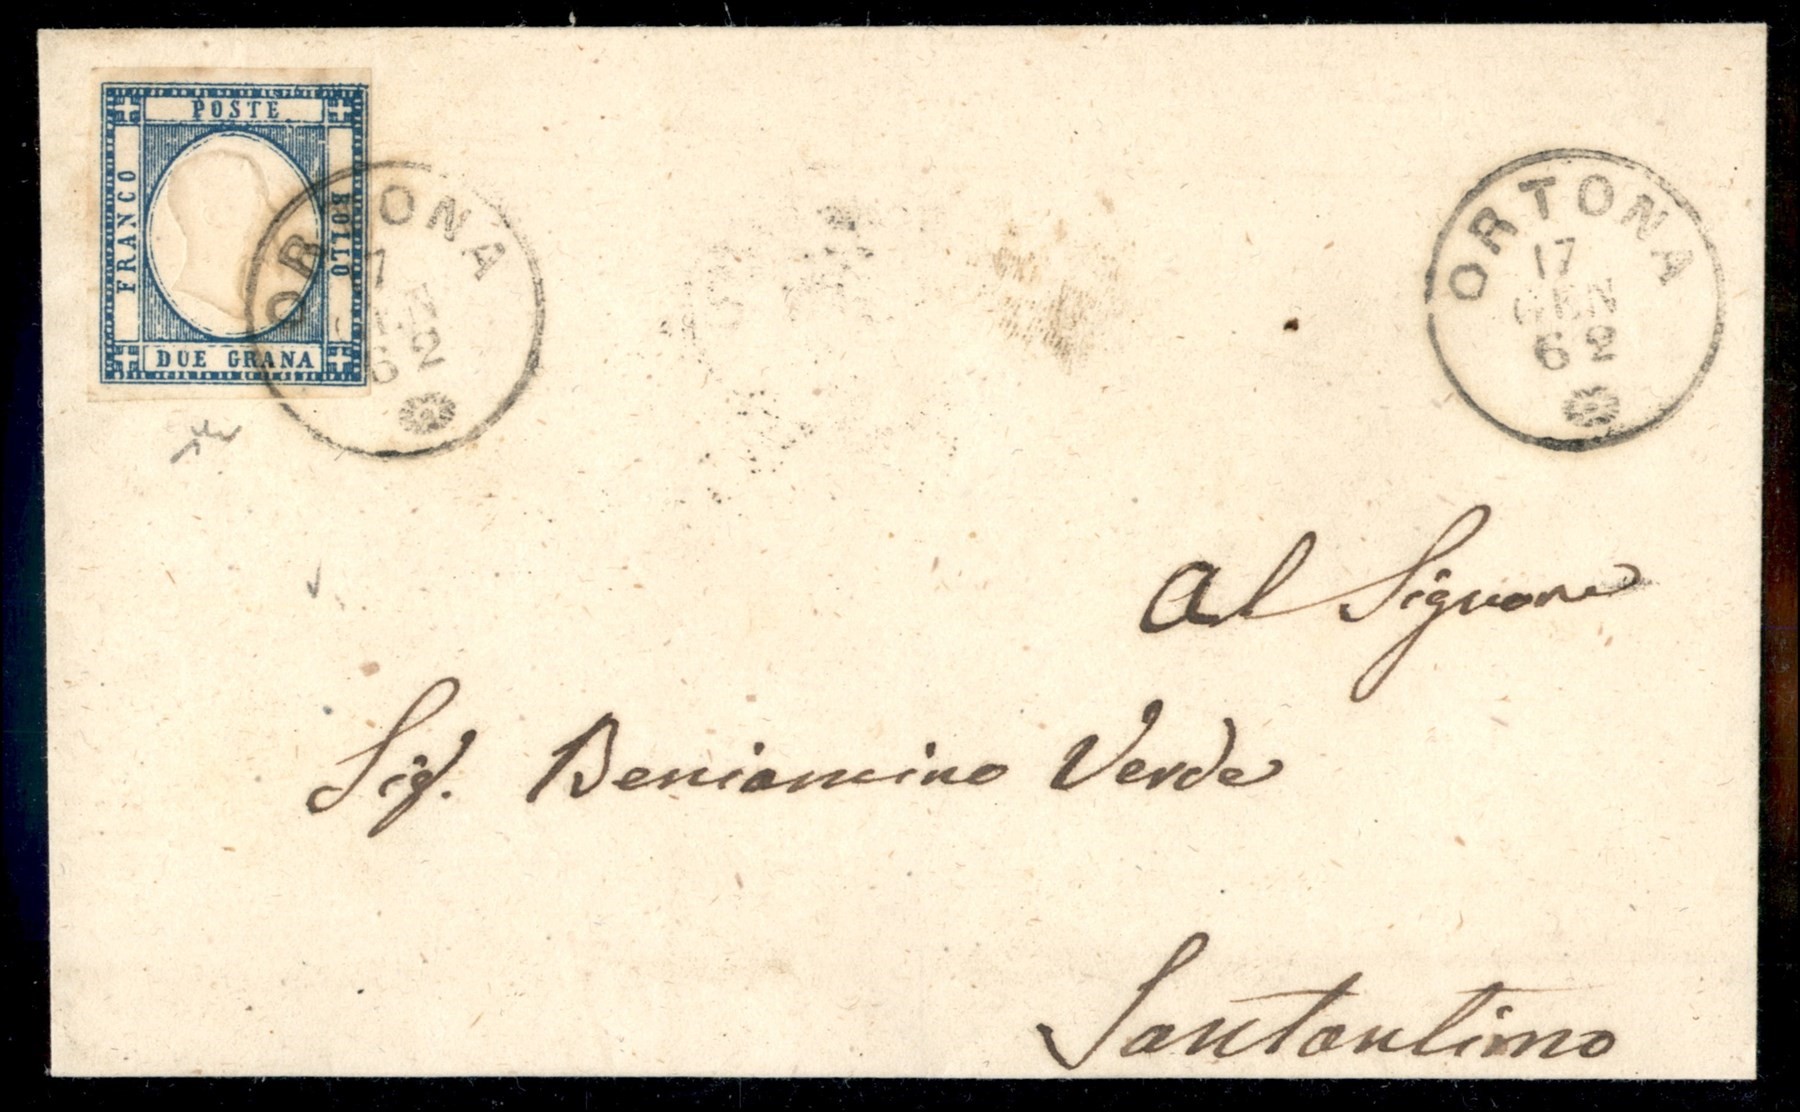 POSTE
FRANCO
BOLLO
DUE GRANA
ORTONA
17
GEN
62
ORTONA
17
GEN
62
Al Signore
Sig. Beniamino Verde
Santantimo